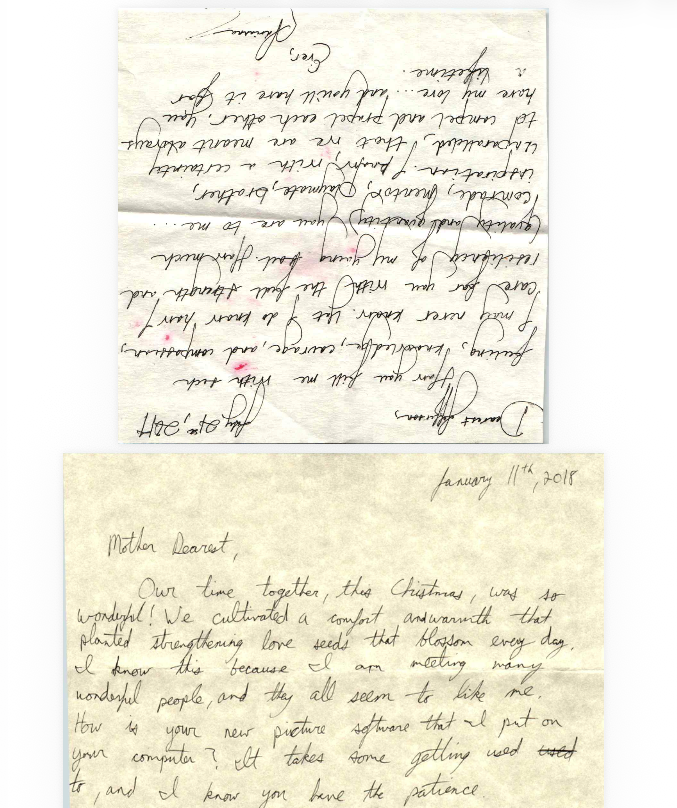 July 21st, 2017
Dearest Jefferson,
How you fill me with such
feeling, knowledge, courage, and compassion,
I may never know. Yet I do know how I
care for you with the full strength and
resiliency of my young soul. How much
quality and quantity you are to me...
comrade, mentor, playmate, brother,
inspiration. I know, with a certainty
unparalleled, that we are meant always
to compel and propel each other. You
have my love... and you'll have it for
a lifetime.
Ever,
January 11th, 2018
Mother Dearest,
Our time together, this Christmas, was so
wonderful! We cultivated a comfort and warmth that
planted strengthening love seeds that blossom every day.
I know this because I am meeting many
wonderful people, and they all seem to like me.
How is your new picture software that I put on
your computer? It takes some getting used used
to, and I know you have the patience